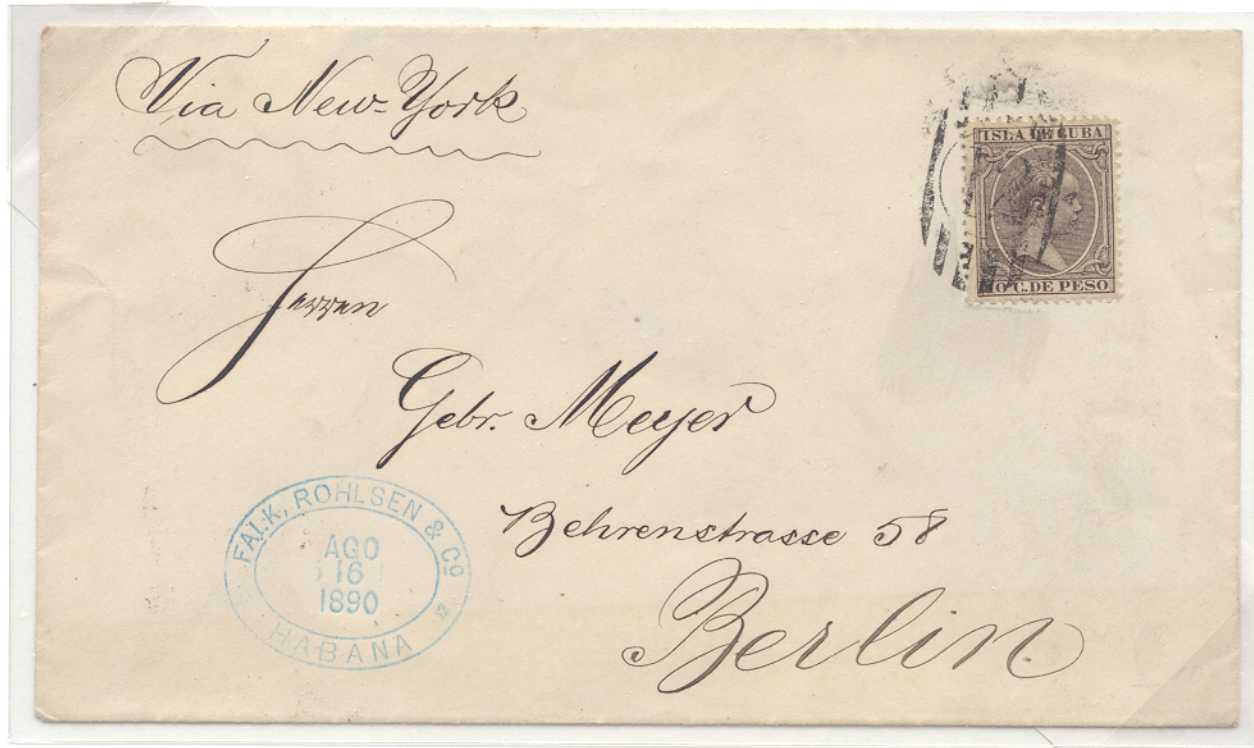 Via New-York
ISLA DE CUBA
10 C. DE PESO
Herren
Gebr. Meyer
Behrenstrasse 58
Berlin
FALK, ROHLSEN & Cº
AGO
16
1890
HABANA